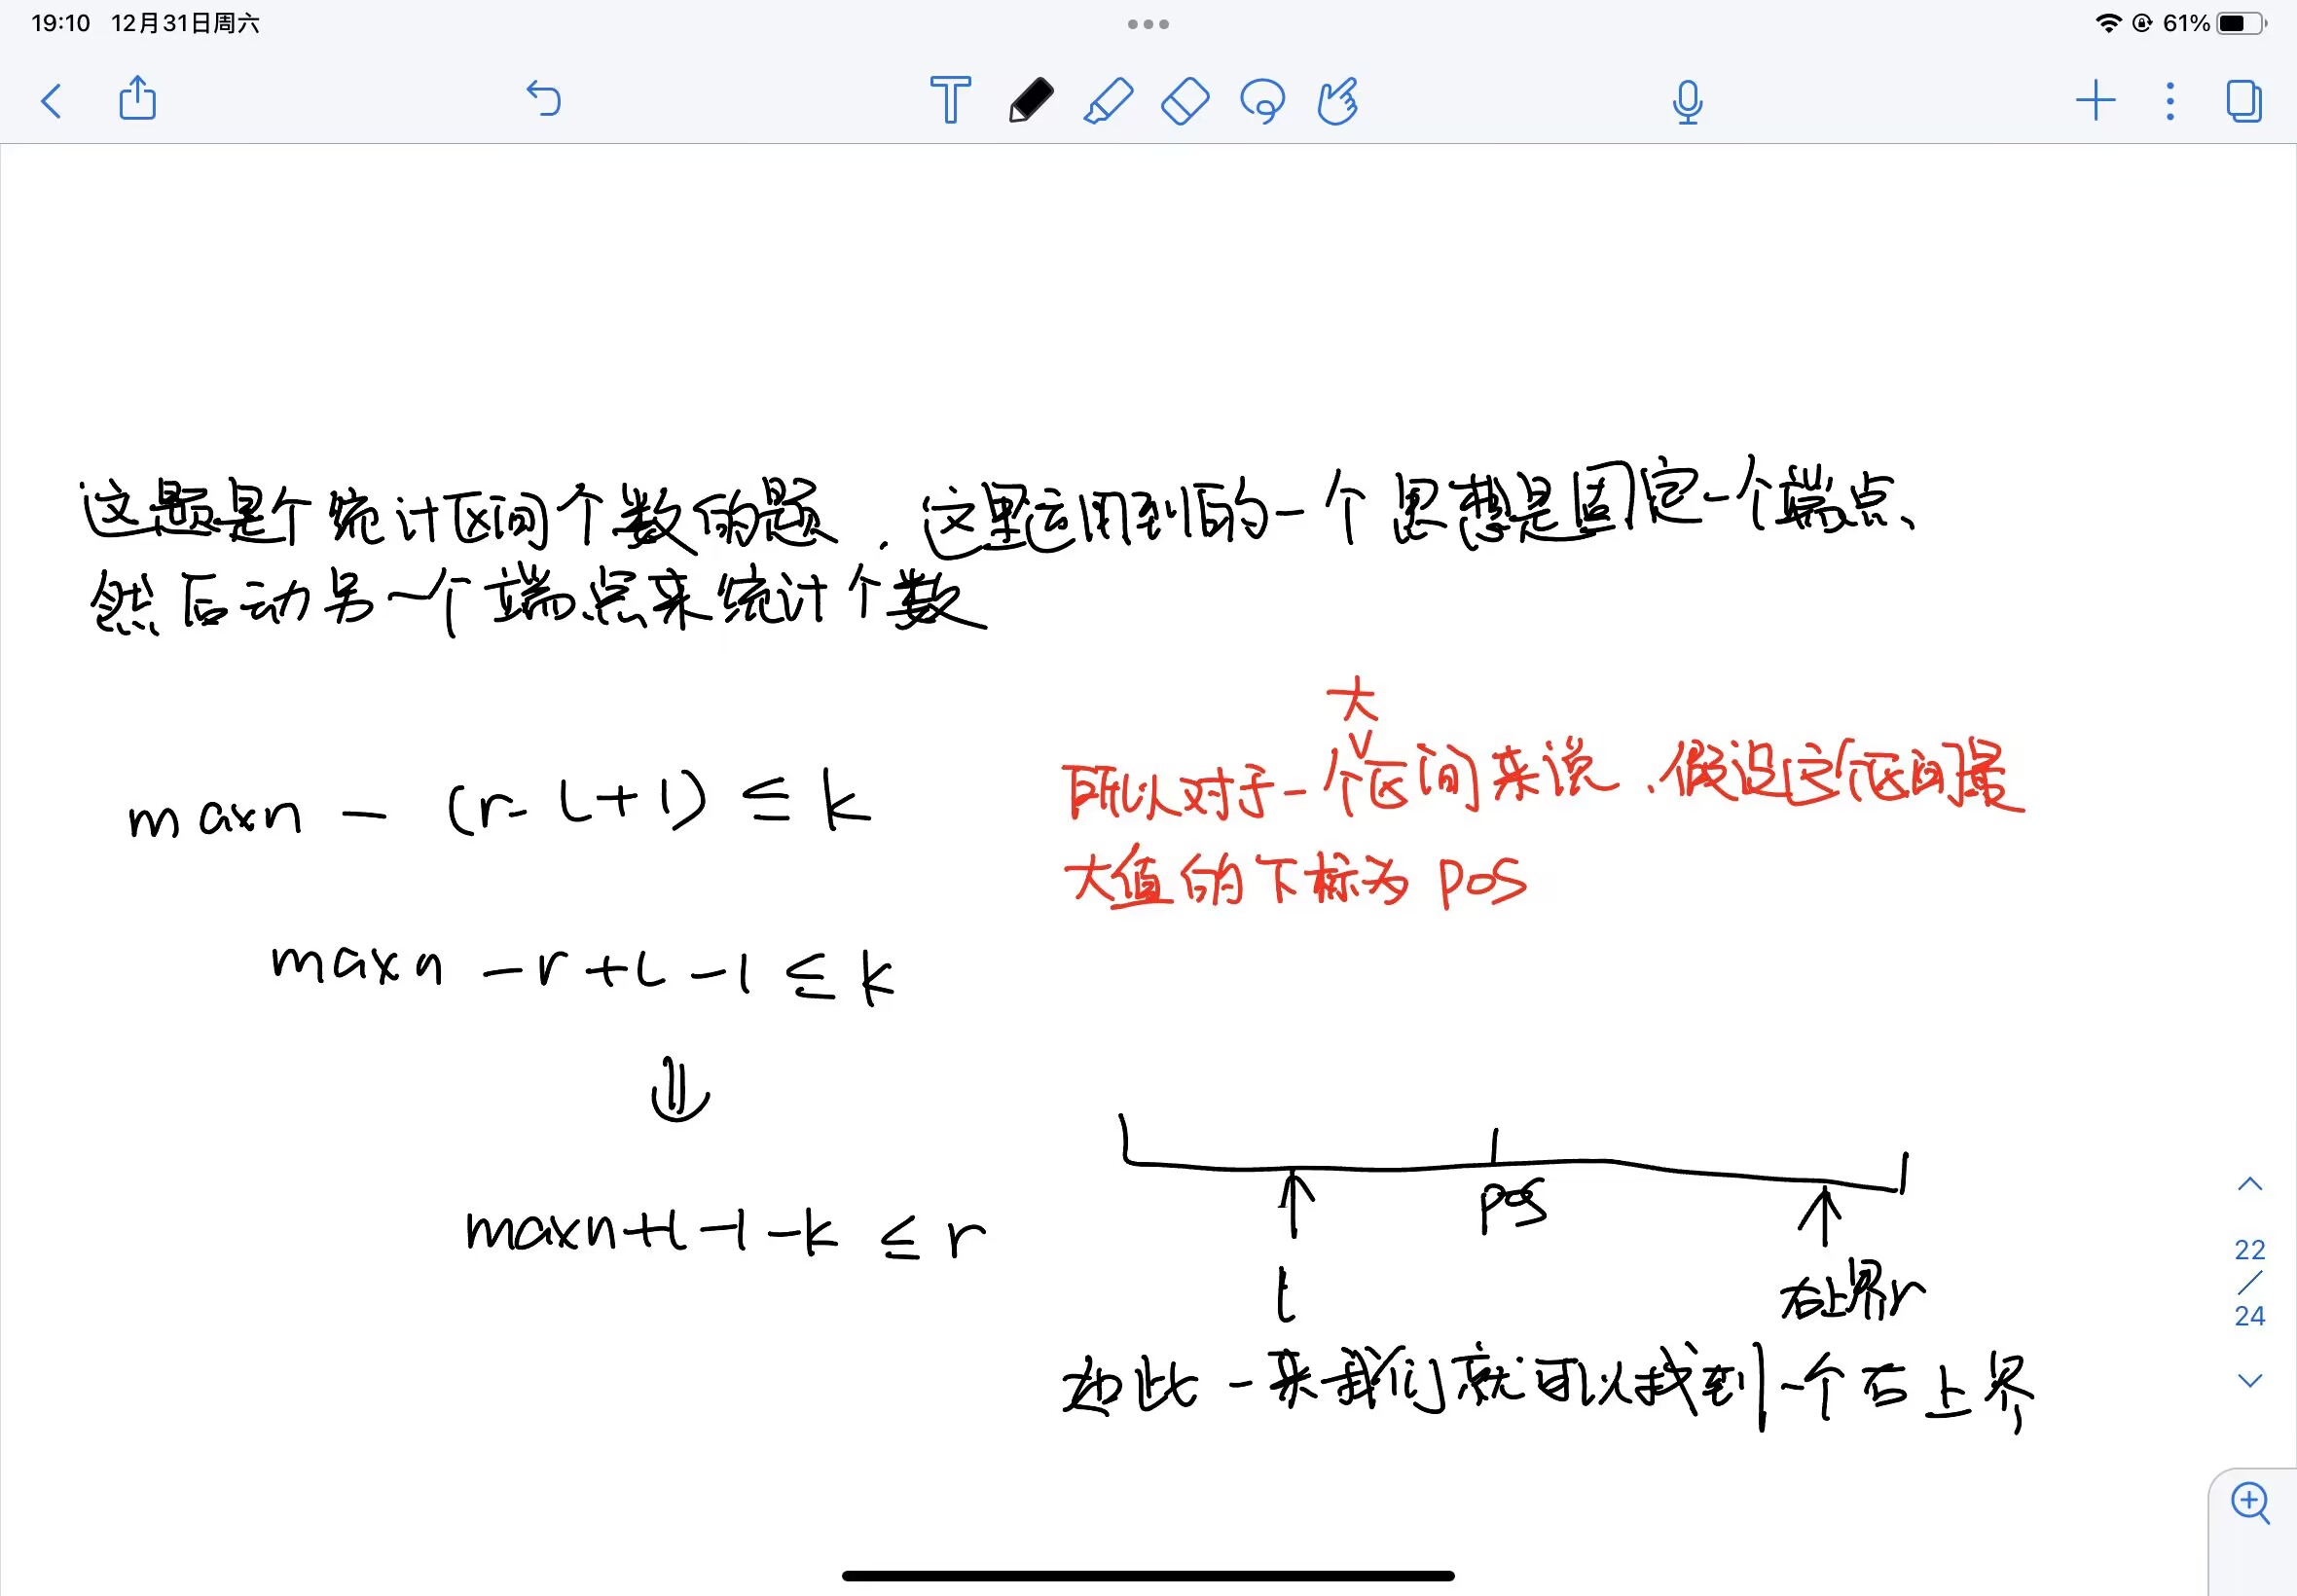 19:10 12月31日周六
61%
T
这题是个统计区间个数的题，这里运用到的一个思想是固定一个端点、
然后动另一个端点来统计个数
maxn - (r-l+1) ≤ k
大
所以对于一个区间来说，假设这个区间最
大值的下标为 pos
maxn -r+l-1 ≤ k
⇓
maxn+l-1-k ≤ r
pos
l
右上界r
如此一来我们就可以找到一个右上界
22
/
24